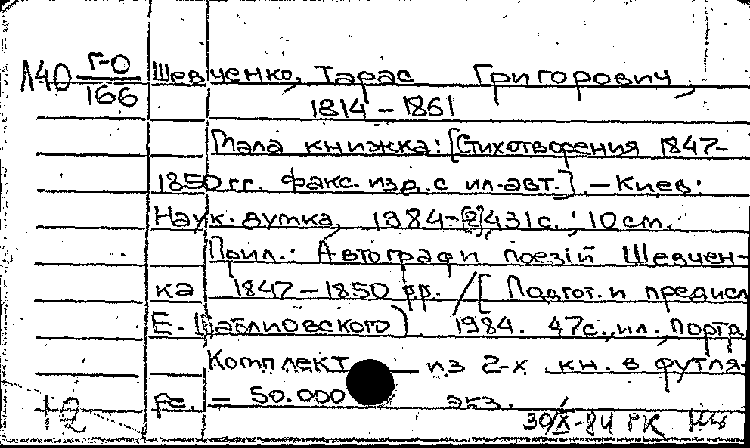 Л40 Г-О Шевченко, Тарас Григорович,
166
1814 – 1861
Мала книжка: [Стихотворения 1847-
1850 гг. Факс. изд. с ил. авт.]. – Киев:
Наук. думка, 1984-[2] 431 с.; 10 см.
Прил.: Автографи поезій Шевчен-
ка 1847 – 1850 рр. / [Подгот. и предисл.
Е. Шаблиовского]. 1984. 47 с., ил., портр.
Комплект из 2-х кн. в футля-
ре. – 50.000 экз.
12 30/X-84 РК